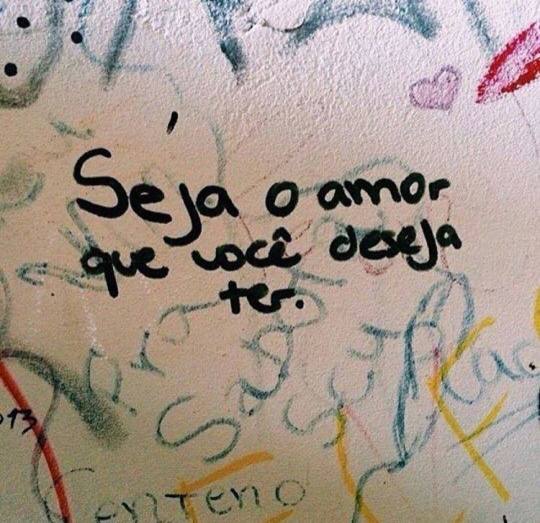 Seja o amor
que você deseja
ter.
para
Centeno